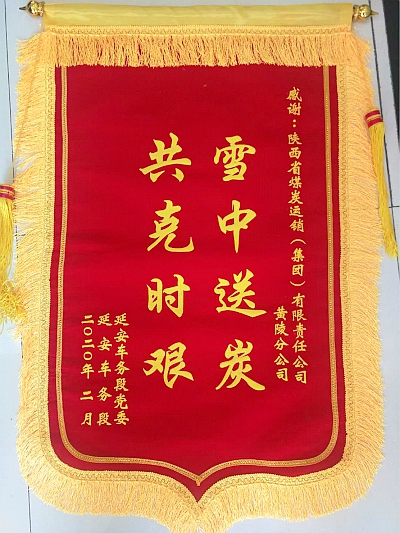 感谢：陕西省煤炭运销（集团）有限责任公司
黄陵分公司
雪中送炭
共克时艰
延安车务段党委
延安车务段
二〇二〇年二月